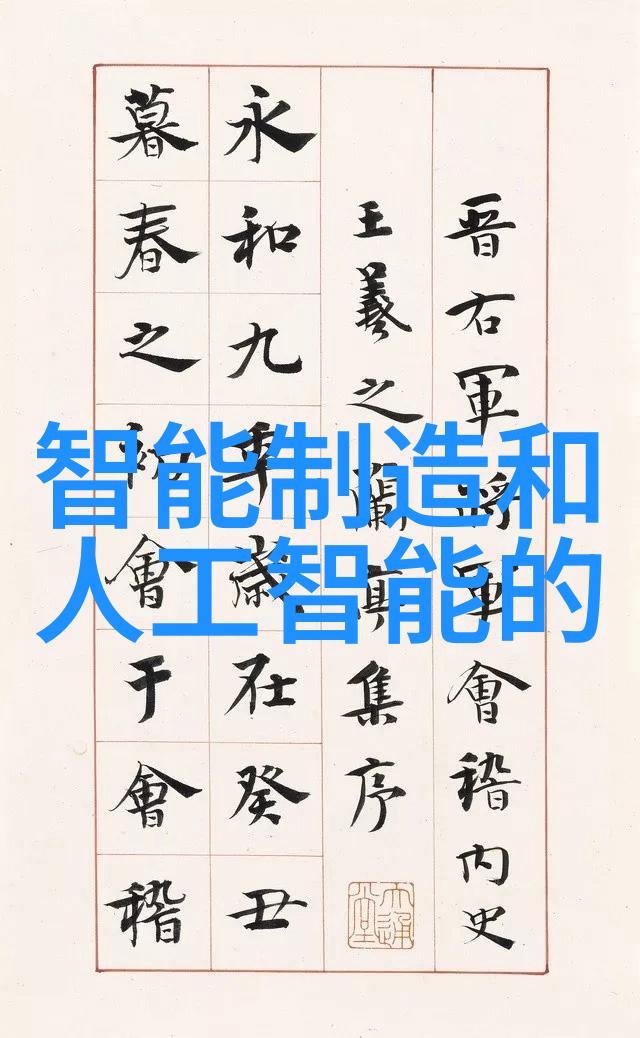 晋右軍將軍會稽内史
王羲之蘭亭集序
永和九年歲在癸丑
暮春之初會于會稽
智能制造和
人工智能的